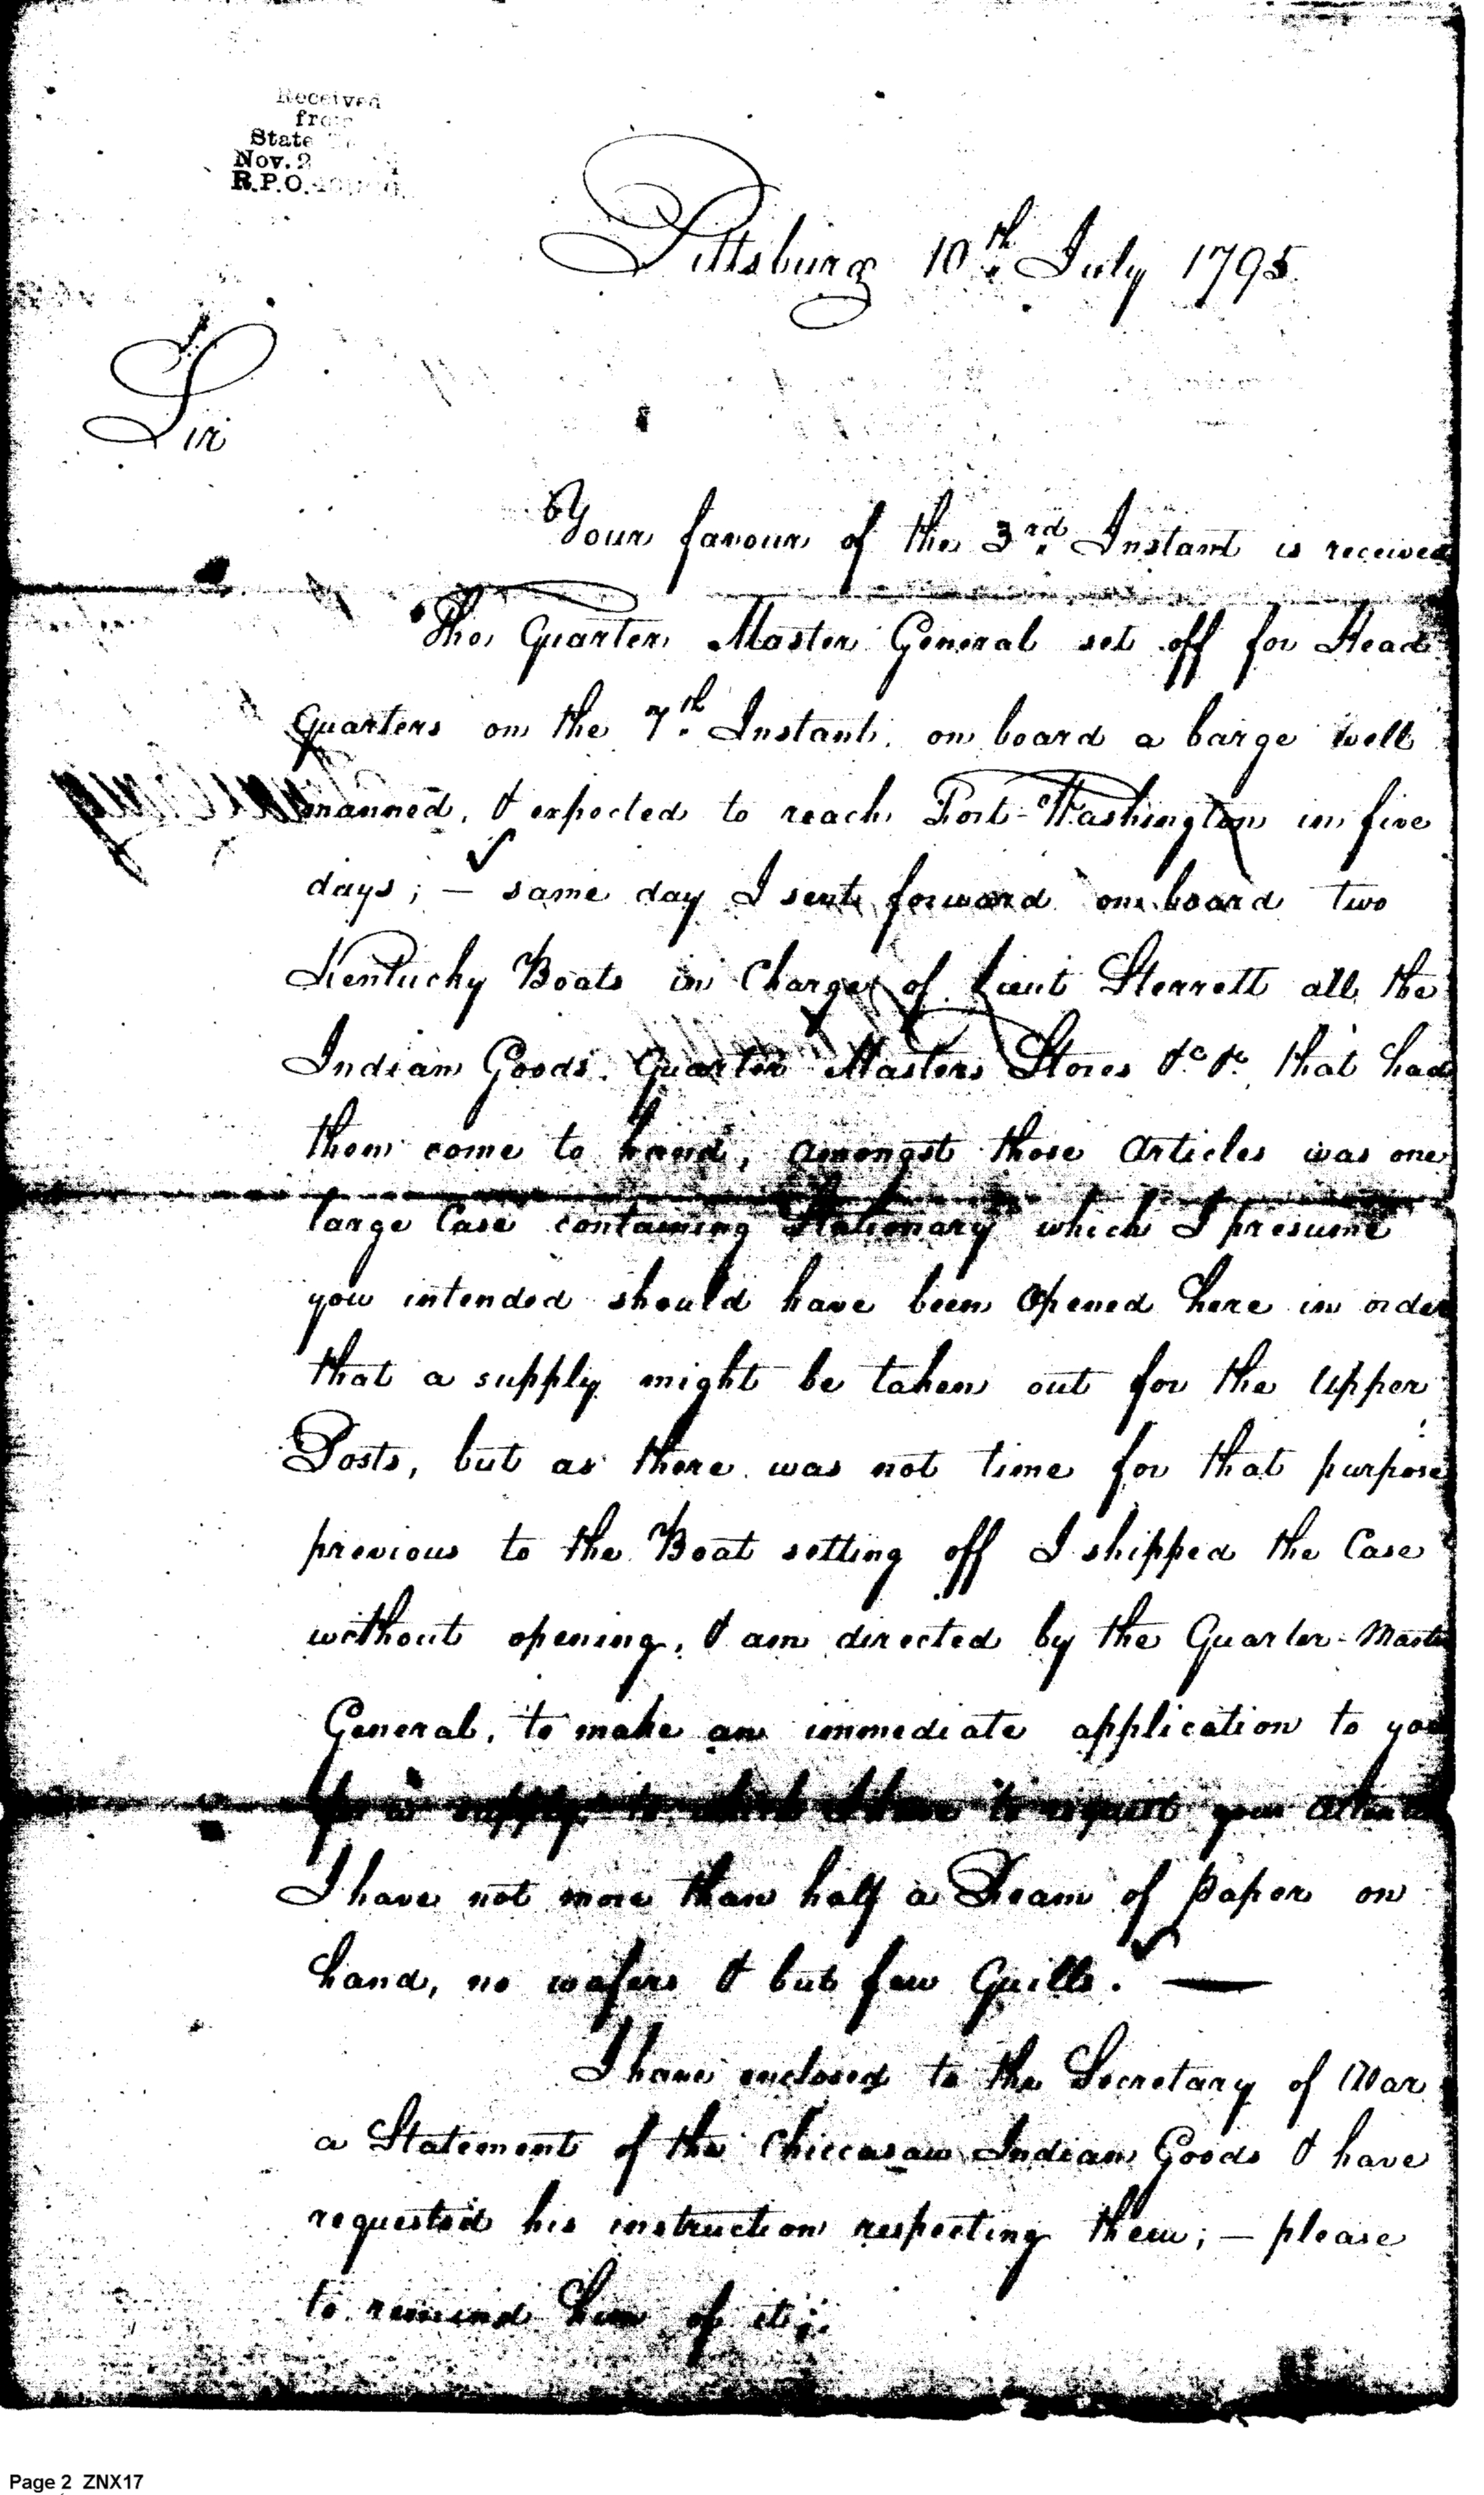 Received
from
State
Nov. 2
R.P.O.
Pittsburg 10th July 1795.
Sir
Your favour of the 3rd Instant is received
The Quarter Master General set off for Head
Quarters on the 7th Instant, on board a barge well
manned, & expected to reach Fort-Washington in five
days; — same day I sent forward on board two
Kentucky Boats in Charge of Lieut Sterrett all the
Indian Goods. Quarter Masters Stores &c &c that had
then come to hand, amongst those Articles was one
large Case containing Stationary which I presume
you intended should have been Opened here in order
that a supply might be taken out for the Upper
Posts, but as there was not time for that purpose
previous to the Boat setting off I shipped the Case
without opening, & am directed by the Quarter-Master
General, to make an immediate application to you
for a supply, to which I have to request your attention
I have not more than half a Ream of paper on
hand, no wafers & but few Quills. —
I have enclosed to the Secretary of War
a Statement of the Chiccasaw Indian Goods & have
requested his instruction respecting them; — please
to remind him of it;
Page 2 ZNX17